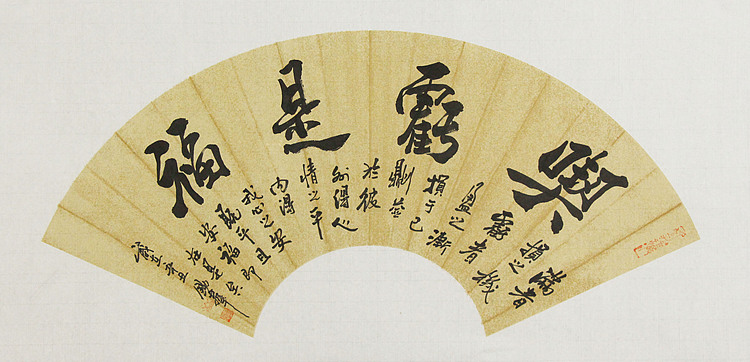 喫虧是福
滿者
損之機
虧者
盈之漸
損于己
則盈
於彼
外得人
情之平
内得
我心之安
既平且
安福即
在是矣
辛丑